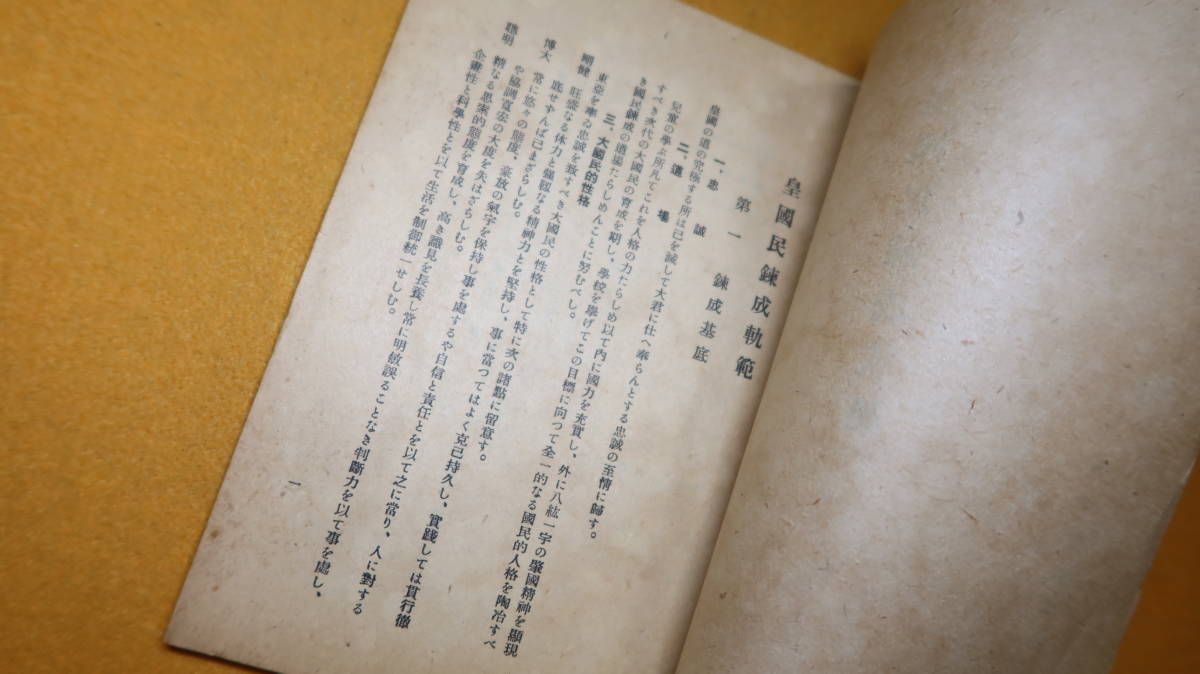 皇國民鍊成軌範
第一　鍊成基底
一、忠　誠
皇國の道の究極する所は己を滅して大君に仕へ奉らんとする忠誠の至情に歸す。
二、道　場
兒童の學ぶ所凡てこれを人格の力たらしめ以て內に國力を充實し、外に八紘一宇の肇國精神を顯現
すべき次代の大國民の育成を期し、學校を擧げてこの目標に向つて全一的なる國民的人格を陶冶すべ
き國民鍊成の道場たらしめんことに努むべし。
三、大國民的性格
東亞を率ゐ忠誠を致すべき大國民の性格として特に次の諸點に留意す。
剛健　旺盛なる体力と強靱なる精神力とを堅持し、事に當つてはよく克己持久し、實踐しては貫行徹
底せずんば已まざらしむ。
博大　常に悠々の態度、豪放の氣宇を保持し事を處するや自信と責任とを以て之に當り、人に對する
や協調寬宏の大度を失はざらしむ。
聰明　精なる思索的態度を育成し、高き識見を長養し常に明敏誤ることなき判斷力を以て事を處し、
企畫性と科學性とを以て生活を制御統一せしむ。
一